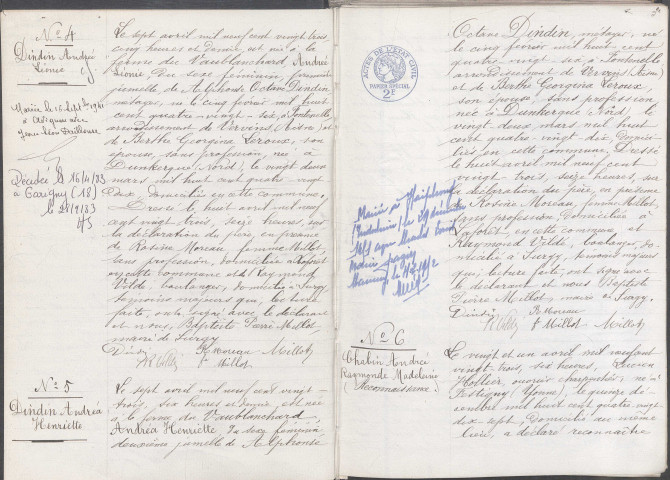 No 4
Dindin Andrée
Léonie
Mariée le 15 Septbre 1941
à
avec
Jean Léon
Décédée le 16/4/83
à Savigny (18)
le 21/9/83
Le sept avril mil neuf cent vingt trois
cinq heures et demie, est née à la
ferme du Vaublanchard, Andrée
Léonie du sexe féminin, première
jumelle de Alphonse Octave Dindin
métayer, né le cinq février mil huit
cent quatre-vingt-six, à Fontenelle
arrondissement de Vervins (Aisne) et
de Berthe Georgina Leroux, son
épouse, sans profession, née à
Dunkerque (Nord), le vingt deux
mars mil huit cent quatre vingt
dix. Domiciliés en cette commune.
Dressé le huit avril mil neuf
cent vingt trois, seize heures, sur
la déclaration du père, en présence
de Rosine Moreau, femme Millot,
sans profession, domiciliée à
en cette commune et de Raymond
Vildé, boulanger, domicilié à Surgy,
témoins majeurs qui, lecture
faite, ont signé avec le déclarant
et nous, Baptiste Pierre Millot,
maire de Surgy.
Dindin R. Moreau Millot
R. Vildé f. Millot
No 5
Dindin Andréa
Henriette
Le sept avril mil neuf cent vingt-
trois, six heures et demie, est née
à la ferme du Vaublanchard
Andréa Henriette du sexe féminin
deuxième jumelle de Alphonse
ACTES DE L'ÉTAT CIVIL
PAPIER SPÉCIAL
2F
Octave Dindin, métayer, né
le cinq février mil huit cent
quatre vingt six, à Fontenelle
arrondissement de Vervins (Aisne)
et de Berthe Georgina Leroux,
son épouse, sans profession
née à Dunkerque (Nord), le
vingt deux mars mil huit
cent quatre vingt dix. Domiciliés
en cette commune. Dressé
le huit avril mil neuf cent
vingt trois, seize heures, sur
la déclaration du père, en présence
de Rosine Moreau, femme Millot,
sans profession, domiciliée à
en cette commune et
Raymond Vildé, boulanger, domicilié
à Surgy, témoins majeurs
qui, lecture faite, ont signé avec
le déclarant et nous Baptiste
Pierre Millot, maire de Surgy.
Dindin R. Moreau
R. Vildé f. Millot Millot
Mariée à
No 6
Chabin Andrée
Raymonde Madeleine
(Reconnaissance)
Le vingt et un avril mil neuf cent
vingt-trois, six heures, Lucien
ouvrier charpentier, né à
Festigny (Yonne), le quinze décembre
mil huit cent quatre vingt
dix-sept, domicilié au même
lieu, a déclaré reconnaître